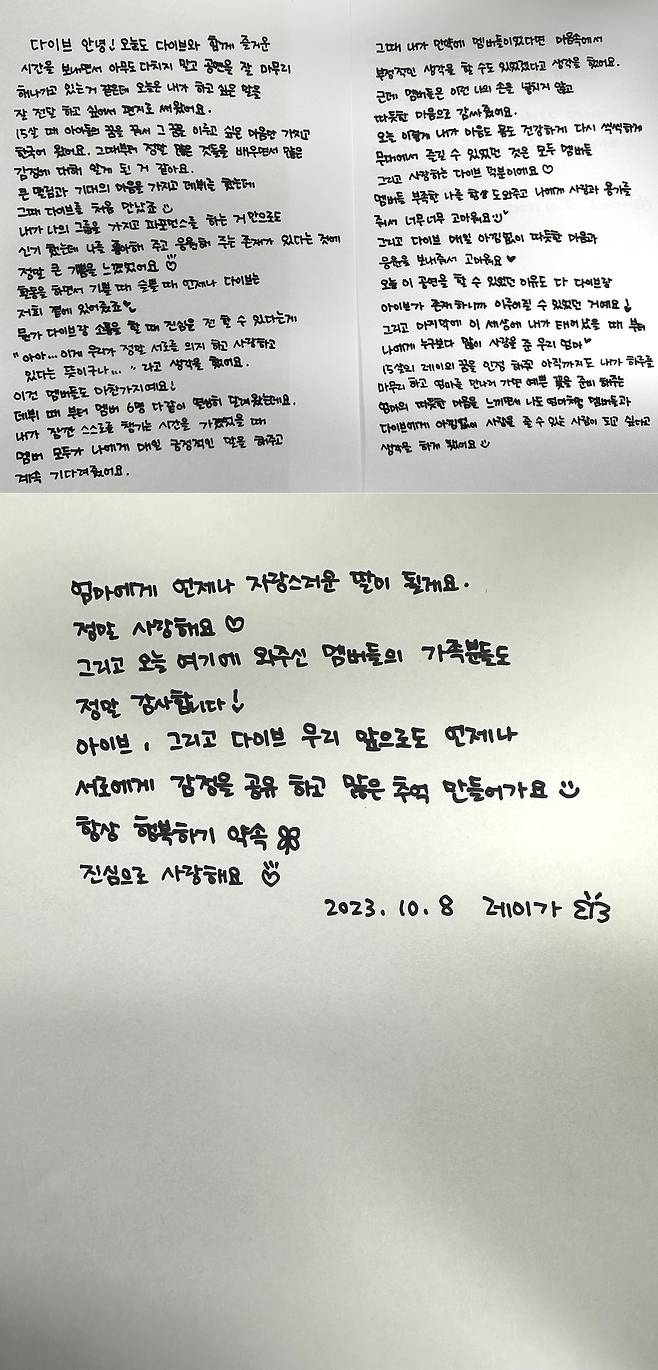 다이브 안녕! 오늘도 다이브와 함께 즐거운
시간을 보내면서 아무도 다치지 말고 공연을 잘 마무리
해나가고 있는거 같은데 오늘은 내가 하고 싶은 말을
잘 전달 하고 싶어서 편지로 써왔어요.
15살 때 아이돌의 꿈을 꿔서 그 꿈을 이루고 싶은 마음만 가지고
한국어 왔어요. 그때부터 정말 많은 것들을 배우면서 많은
감정에 대해 알게 된 거 같아요.
큰 떨림과 기대의 마음을 가지고 데뷔를 했는데
그때 다이브를 처음 만났죠
내가 나의 그룹을 가지고 퍼포먼스를 하는 거만으로도
신기 했는데 나를 좋아해 주고 응원해 주는 존재가 있다는 것에
정말 큰 기쁨을 느꼈었어요
활동을 하면서 기쁠 때 슬플 때 언제나 다이브는
저희 곁에 있어줬죠
뭔가 다이브랑 소통을 할 때 진심을 전 할 수 있다는게
"아아... 이게 우리가 정말 서로를 의지 하고 사랑하고
있다는 뜻이구나..." 라고 생각을 했어요.
이건 멤버들도 마찬가지예요!
데뷔 때 부터 멤버 6명 다같이 열심히 달려왔는데요.
내가 잠깐 스스로를 챙기는 시간을 가졌었을 때
멤버 모두가 나에게 매일 긍정적인 말을 해주고
계속 기다려줬어요.
그때 내가 만약에 멤버들이었다면 마음속에서
부정적인 생각을 할 수도 있었겠다고 생각을 했어요.
근데 멤버들은 이런 나의 손을 놓치지 않고
따뜻한 마음으로 감싸줬어요.
오늘 이렇게 내가 마음도 몸도 건강하게 다시 씩씩하게
무대에서 즐길 수 있었던 것은 모두 멤버들
그리고 사랑하는 다이브 덕분이에요 ♡
멤버들 부족한 나를 항상 도와주고 나에게 사랑과 용기를
줘서 너무너무 고마워요
그리고 다이브 매일 아낌없이 따뜻한 마음과
응원을 보내줘서 고마워요 ♥
오늘 이 공연을 할 수 있었던 이유도 다 다이브랑
아이브가 존재하니까 이루어질 수 있었던 거예요!
그리고 마지막에 이 세상에 내가 태어났을 때 부터
나에게 누구보다 많이 사랑을 준 우리 엄마
15살의 레이의 꿈을 인정 해주고 아직까지도 내가 하루를
마무리 하고 엄마를 만나러 가면 예쁜 꽃을 준비 해주는
엄마의 따뜻한 마음을 느끼면서 나도 엄마처럼 멤버들과
다이브에게 아낌없이 사랑을 줄 수 있는 사람이 되고 싶다고
생각을 하게 됐어요
엄마에게 언제나 자랑스러운 딸이 될게요.
정말 사랑해요 ♡
그리고 오늘 여기에 와주신 멤버들의 가족분들도
정말 감사합니다!
아이브, 그리고 다이브 우리 앞으로도 언제나
서로에게 감정을 공유 하고 많은 추억 만들어가요
항상 행복하기 약속
진심으로 사랑해요
2023. 10. 8 레이가